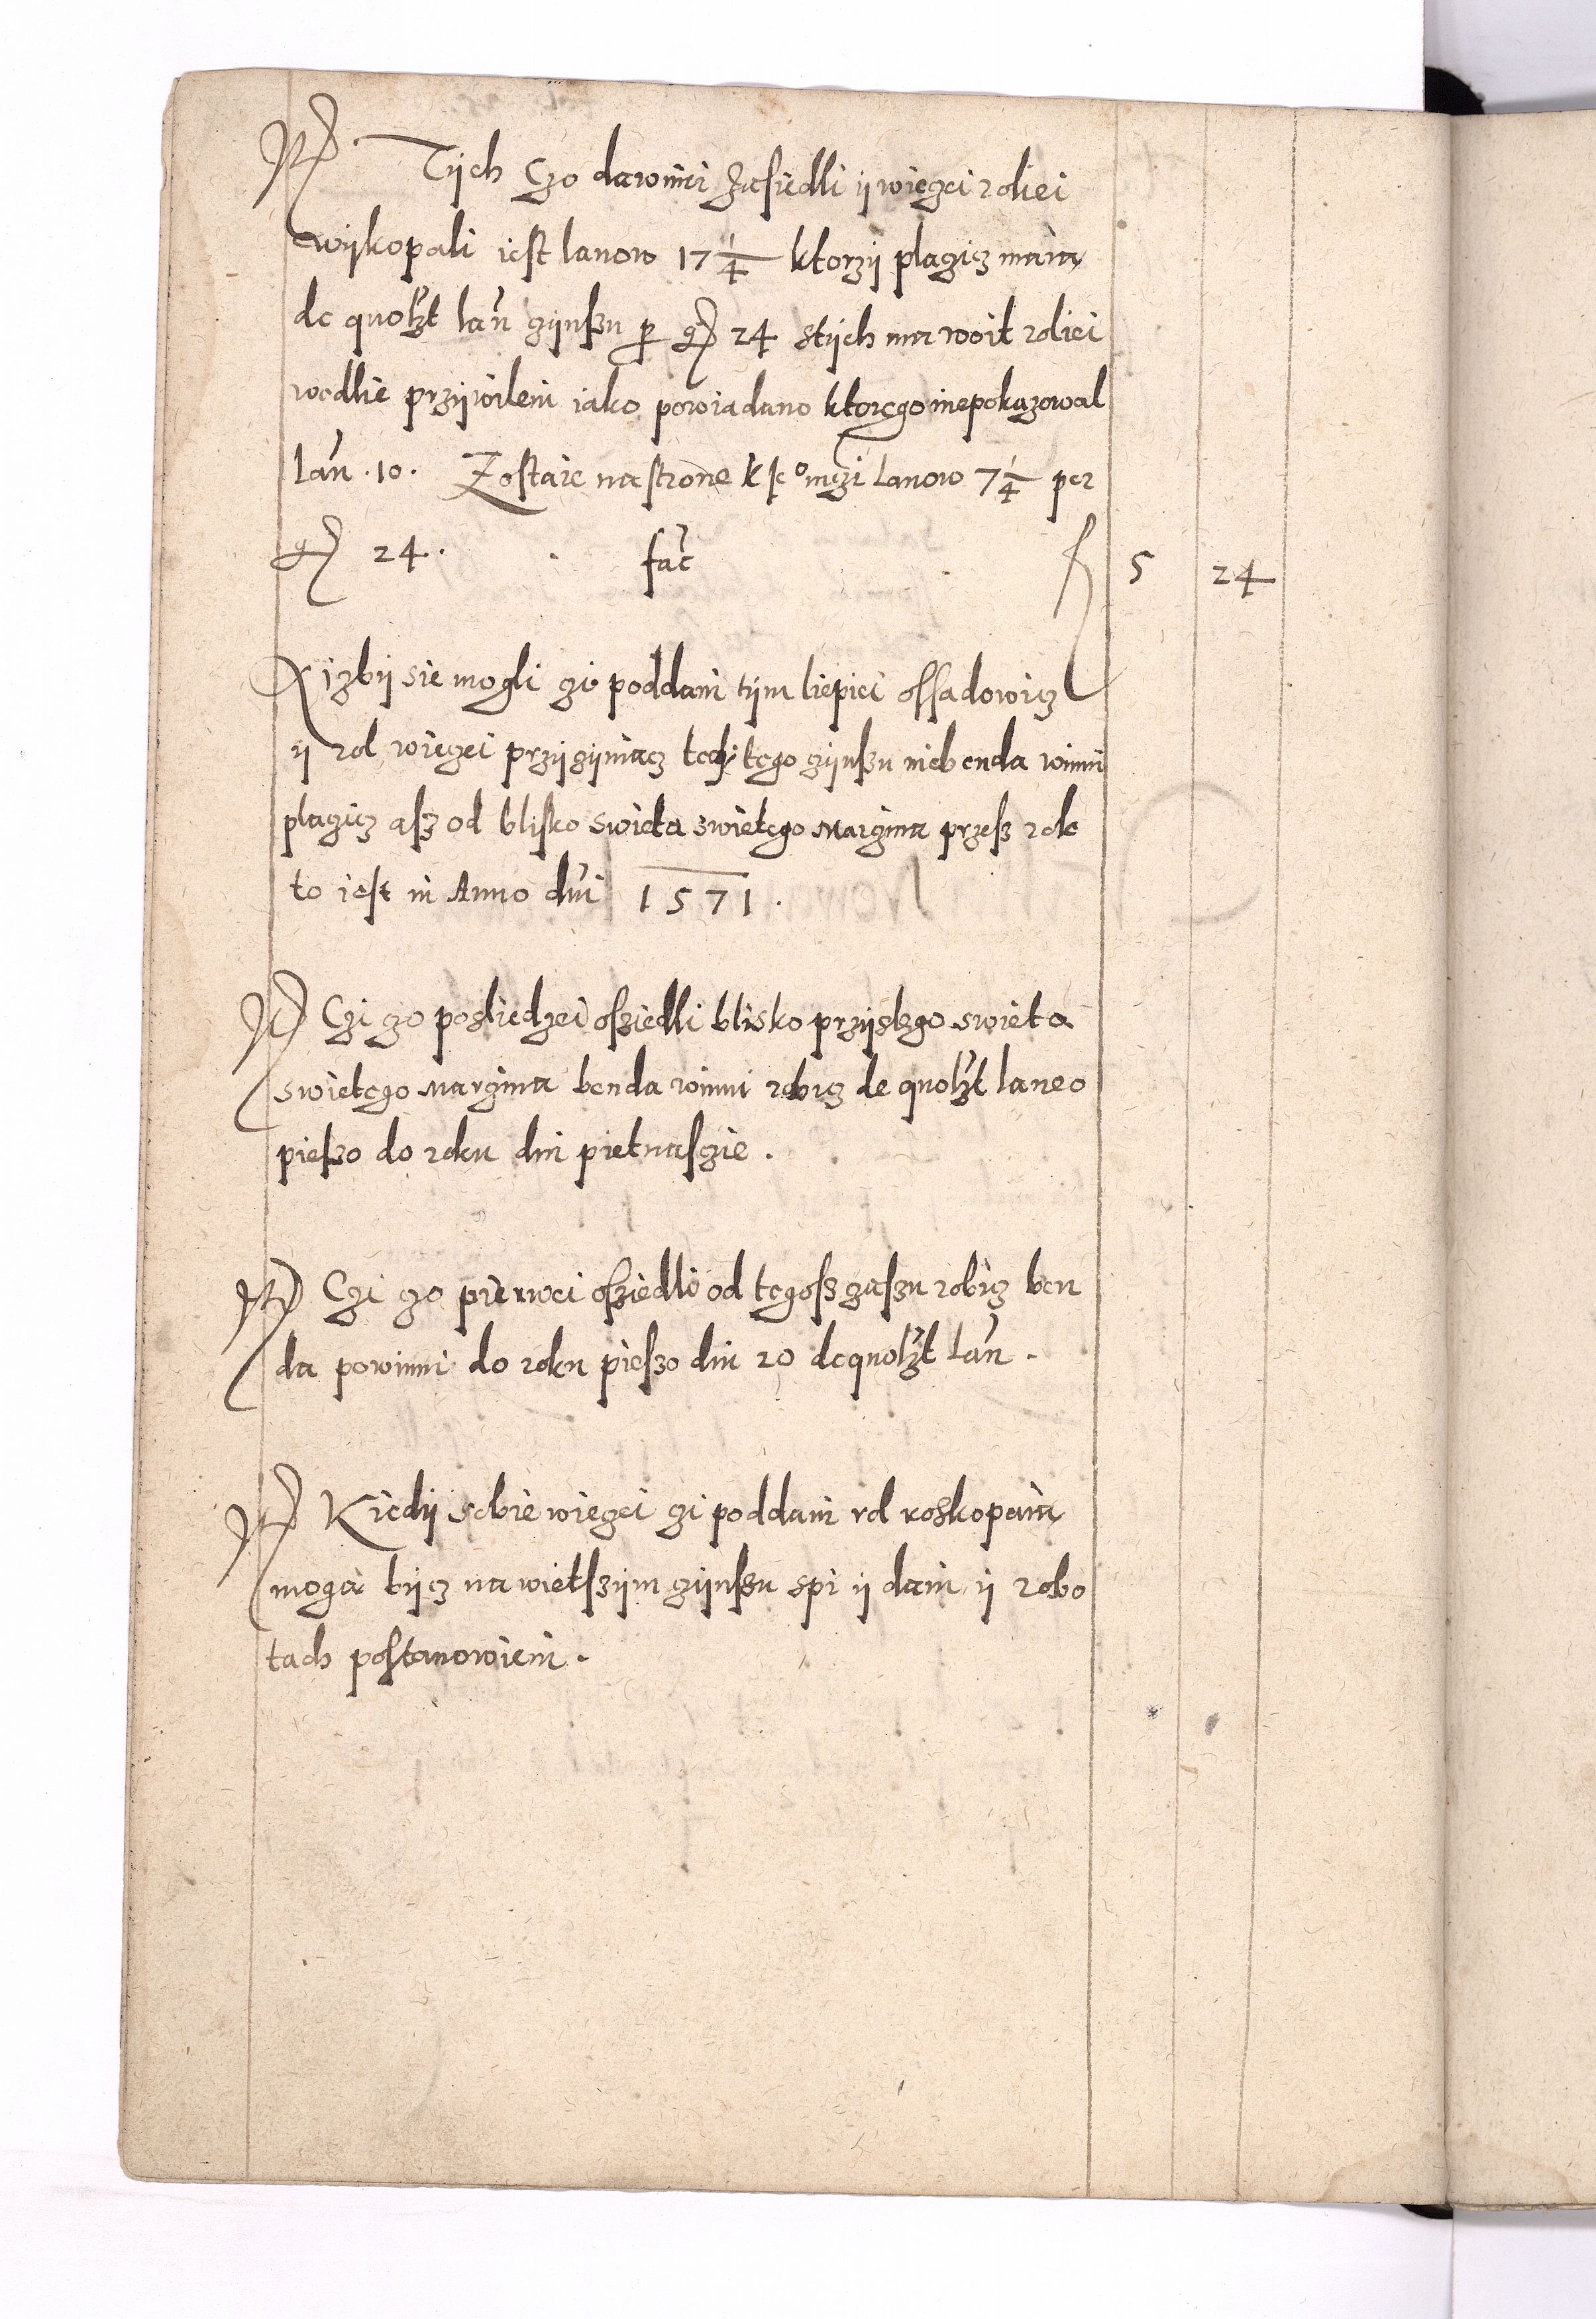 It Tych czo dawniei zasiedli ij wieczei roliei
wijkopali iest lanow 17 1/4 ktorzij placzicz maia
de quolzt lan̄ czijnszu per gr 24 stijch ma woit roliei
wedlie przijwileiu iako powiadano ktorego niepokazowal
lan̄ .10. Zostaie na strone k Je° mczi lanow 7 1/4 per
gr 24. fac̄ f 5 24
izbij sie mogli czi poddani tijm liepiei ossadowicz
ij rol wieczei przijczijniacz tedij tego czijnszu niebenda winni
placzicz asz od blisko swieta swietego Marczina przesz rok
to iest in Anno dni 1571.
It Czi czo posliedzei osziedli blisko przijslego swieta
swietego Marczina benda winni robicz de quolzt laneo
pieszo do roku dni pietnasczie.
It Czi czo pierwei osziedli od tegosz czaszu robicz ben
da powinni do roku pieszo dni 20 de quolzt lan̄.
It Kiedij sobie wieczei czi poddani rol roskopaia
moga bijcz na wietszijm czijnszu spi ij dani ij robo
tach postanowieni.